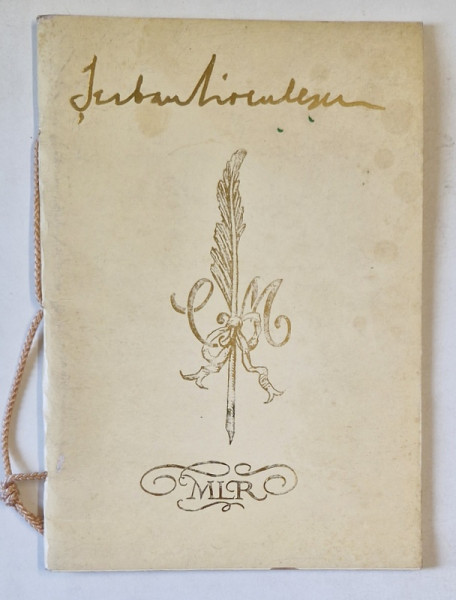 Șerban Cioculescu
C M
MLR